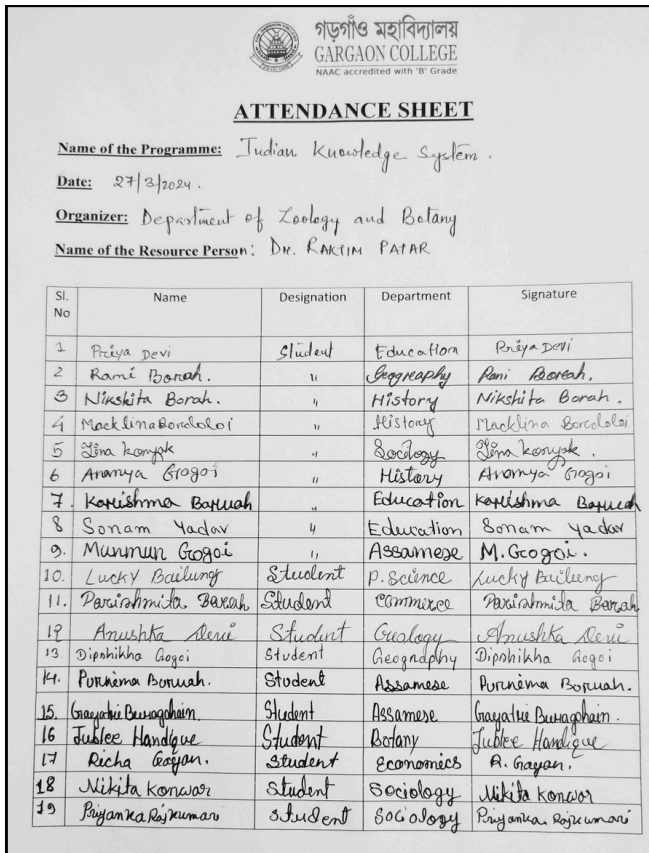 গড়গাঁও মহাবিদ্যালয়
GARGAON COLLEGE
NAAC accredited with 'B' Grade
ATTENDANCE SHEET
Name of the Programme: Indian Knowledge System.
Date: 27/3/2024.
Organizer: Department of Zoology and Botany
Name of the Resource Person: Dr. RAKTIM PATAR
Sl. No Name Designation Department Signature
1 Priya Devi Student Education Priya Devi
2 Rani Borah. " Geography Rani Borah.
3 Nikshita Borah. " History Nikshita Borah.
4 Macklina Bordoloi " History Macklina Bordoloi
5 Lina konyak " Socology Lina konyak.
6 Ananya Gogoi " History Ananya Gogoi
7. Karishma Baruah " Education Karishma Baruah
8 Sonam Yadav " Education Sonam Yadav
9. Munmun Gogoi " Assamese M. Gogoi.
10. Lucky Bailung Student P. Science Lucky Bailung
11. Parishmita Baruah Student Commerce Parishmita Baruah
12 Anushka Devi Student Geology Anushka Devi
13 Dipshikha Gogoi Student Geography Dipshikha Gogoi
14. Purnima Boruah. Student Assamese Purnima Boruah.
15. Gayatri Buragohain. Student Assamese Gayatri Buragohain.
16 Jublee Handique Student Botany Jublee Handique
17 Richa Gayan. Student Economics R. Gayan.
18 Nikita Konwar Student Sociology Nikita Konwar
19 Priyanka Rajkumari Student Sociology Priyanka Rajkumari